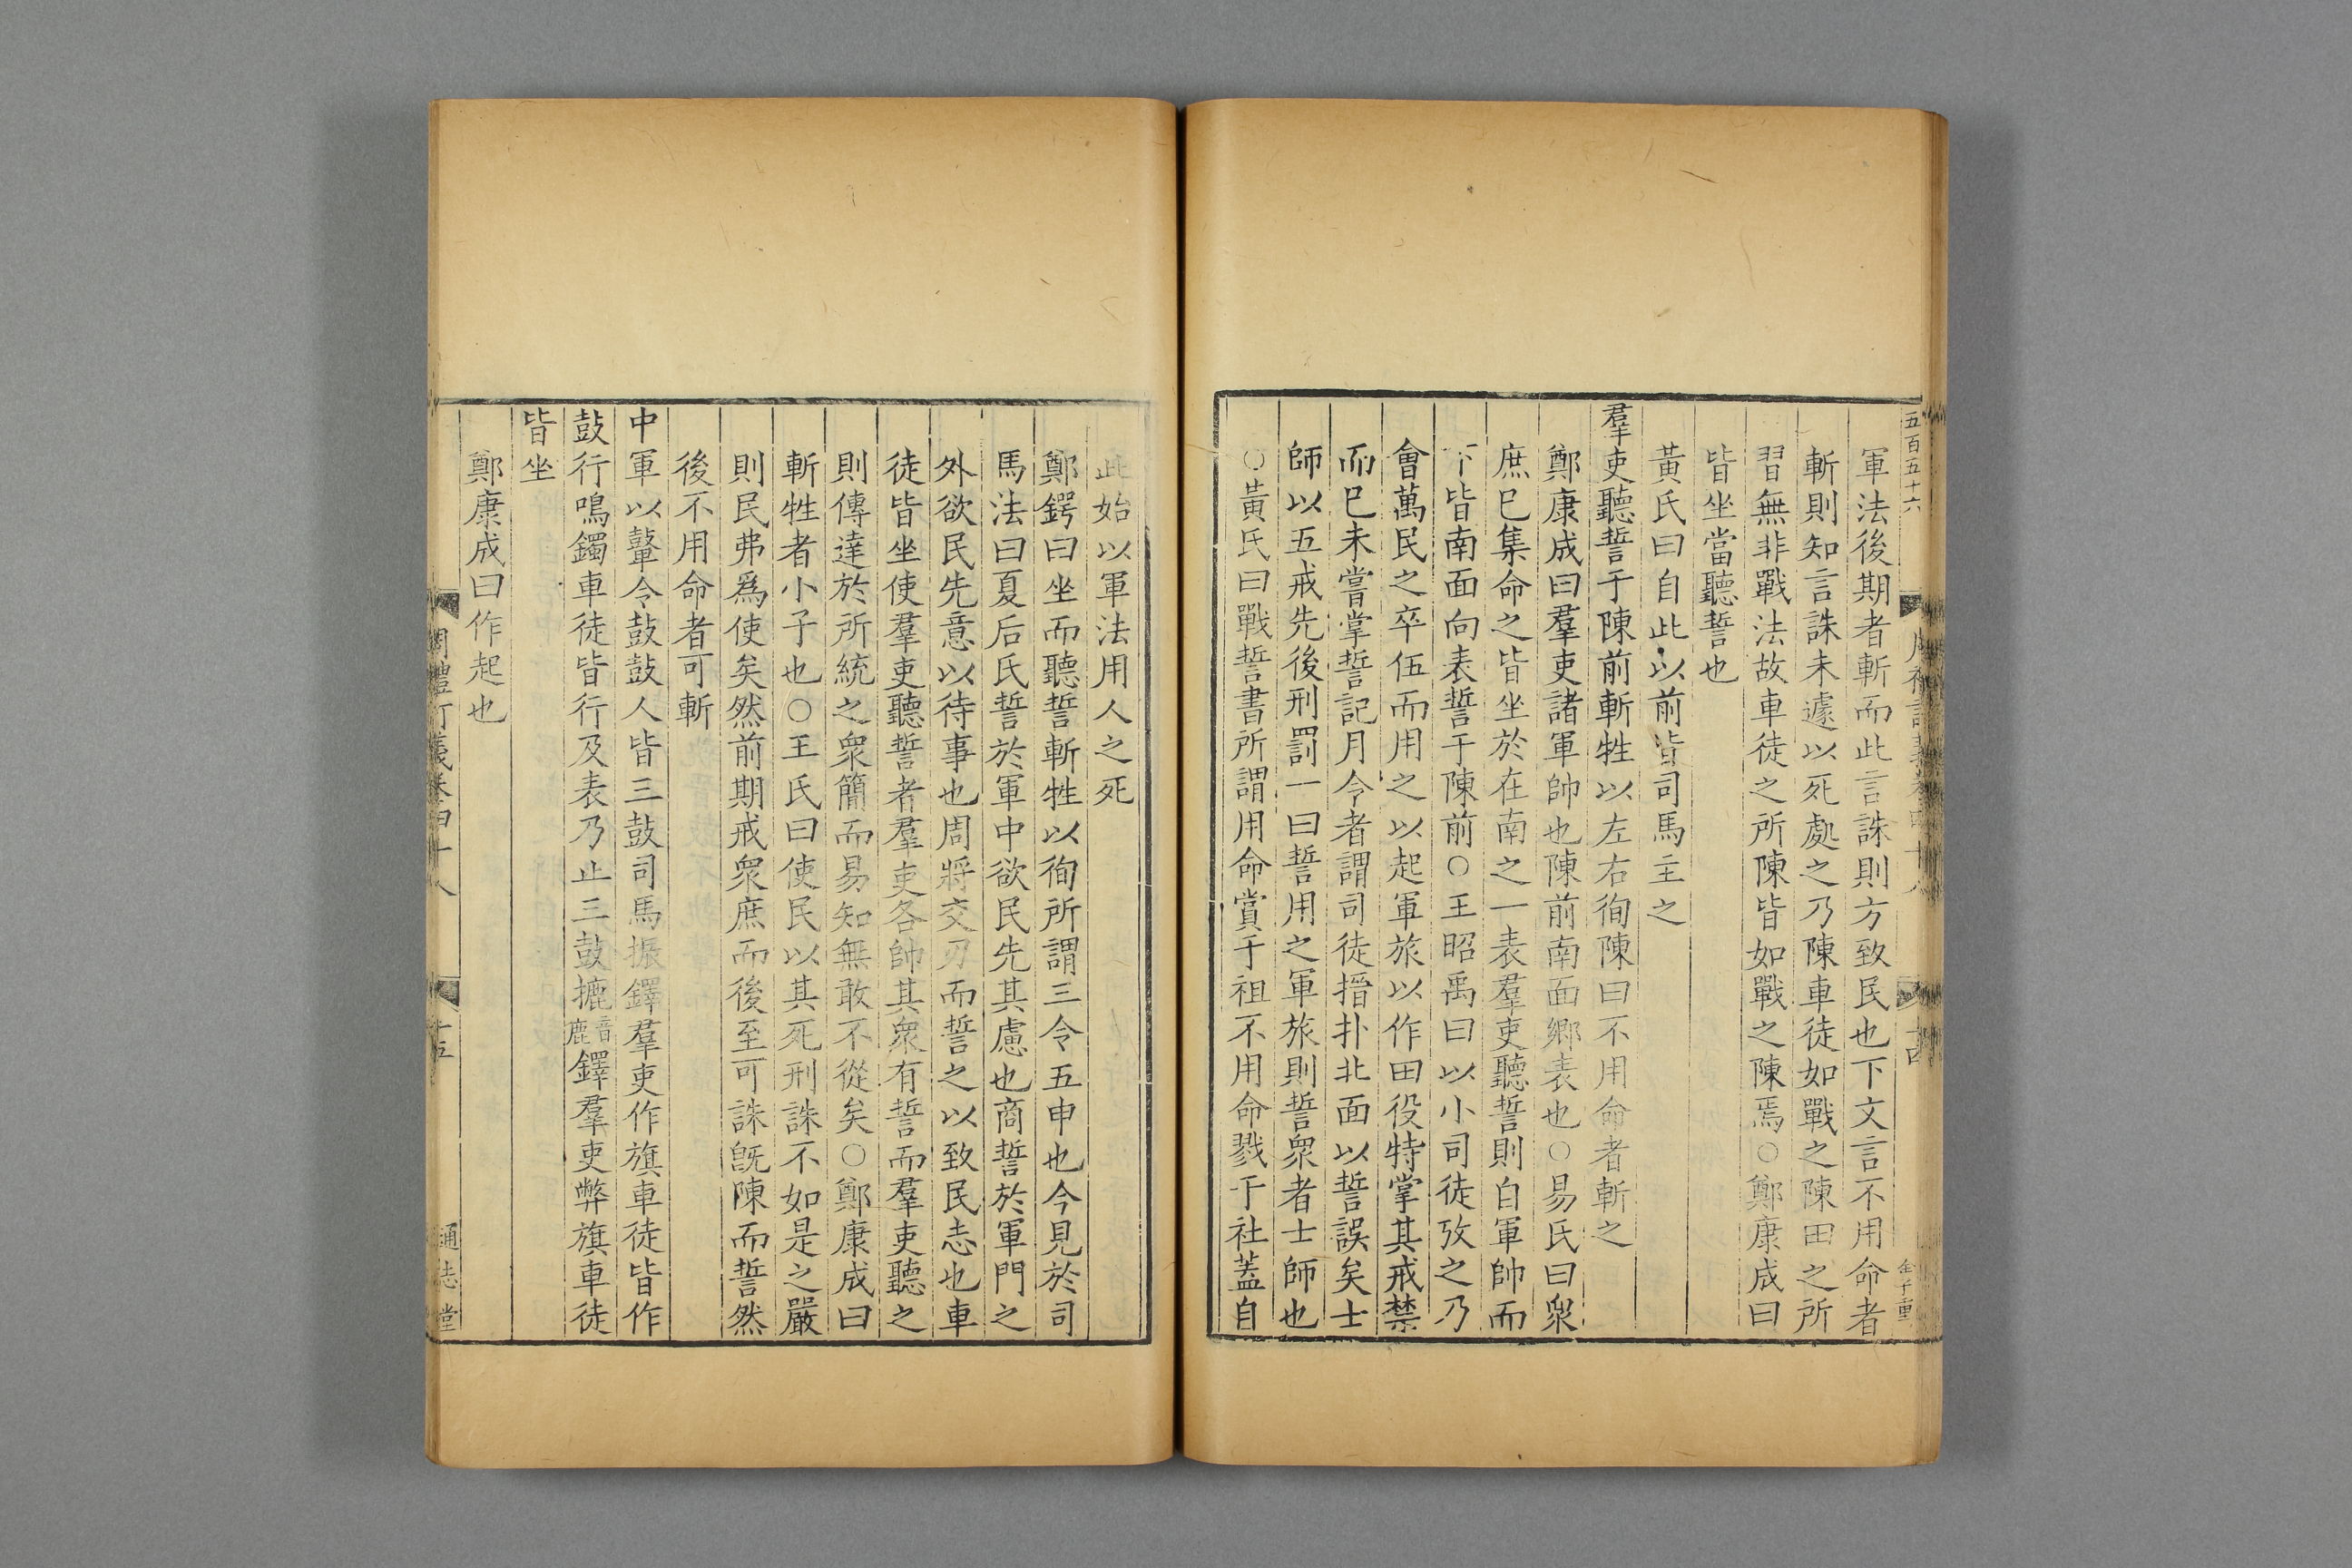 五百五十六
軍法後期者斬而此言誅則方致民也下文言不用命者
斬則知言誅未遽以死處之乃陳車徒如戰之陳田之所
習無非戰法故車徒之所陳皆如戰之陳焉○鄭康成曰
皆坐當聽誓也
黃氏曰自此以前皆司馬主之
羣吏聽誓于陳前斬牲以左右徇陳曰不用命者斬之
鄭康成曰羣吏諸軍帥也陳前南面鄉表也○易氏曰衆
庶已集命之皆坐於在南之一表羣吏聽誓則自軍帥而
下皆南面向表誓于陳前○王昭禹曰以小司徒攷之乃
會萬民之卒伍而用之以起軍旅以作田役特掌其戒禁
而已未嘗掌誓記月令者謂司徒搢扑北面以誓誤矣士
師以五戒先後刑罰一曰誓用之軍旅則誓衆者士師也
○黃氏曰戰誓書所謂用命賞于祖不用命戮于社蓋自
此始以軍法用人之死
鄭鍔曰坐而聽誓斬牲以徇所謂三令五申也今見於司
馬法曰夏后氏誓於軍中欲民先其慮也商誓於軍門之
外欲民先意以待事也周將交刃而誓之以致民志也車
徒皆坐使羣吏聽誓者羣吏各帥其衆有誓而羣吏聽之
則傳達於所統之衆簡而易知無敢不從矣○鄭康成曰
斬牲者小子也○王氏曰使民以其死刑誅不如是之嚴
則民弗爲使矣然前期戒衆庶而後至可誅旣陳而誓然
後不用命者可斬
中軍以鼙令鼓鼓人皆三鼓司馬振鐸羣吏作旗車徒皆作
鼓行鳴鐲車徒皆行及表乃止三鼓摝音鹿鐸羣吏弊旗車徒
皆坐
鄭康成曰作起也
周禮訂義卷四十八
十五
通志堂